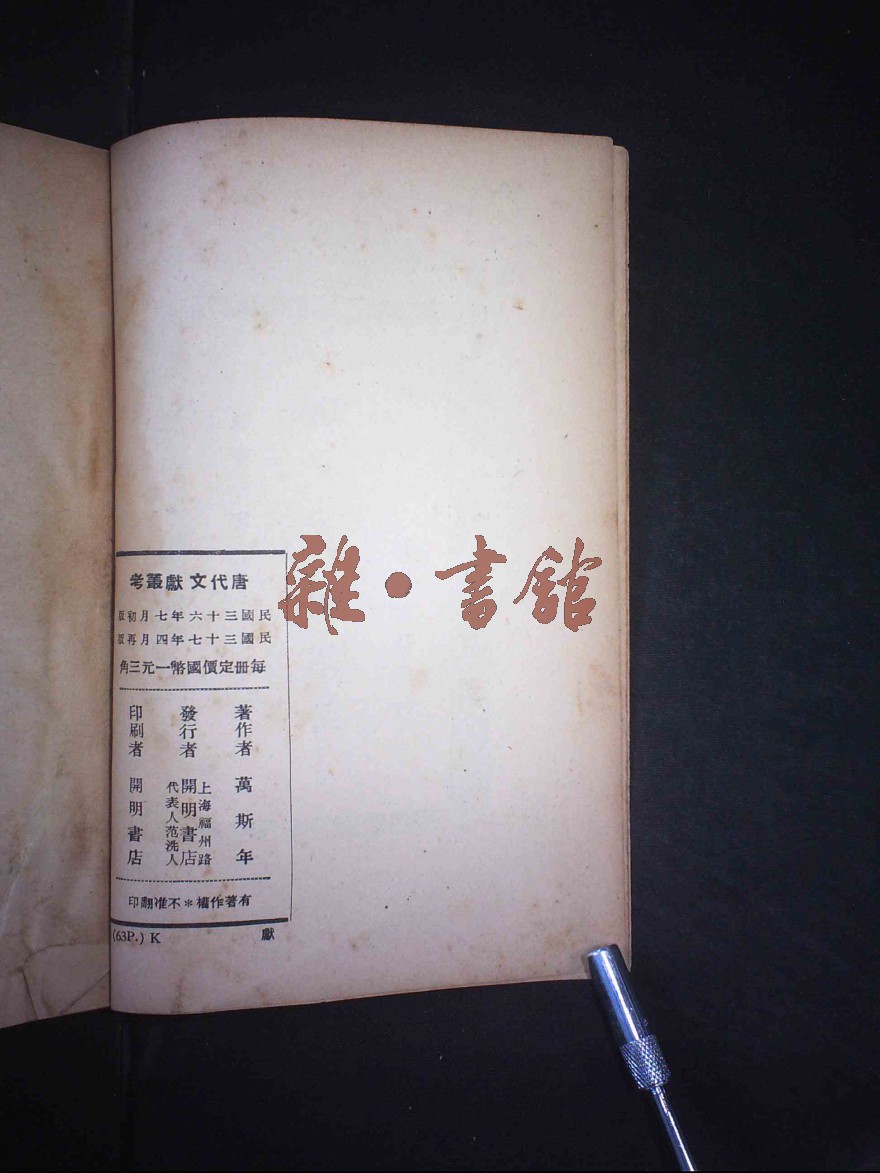 唐代文獻叢考
民國三十六年七月初版
民國三十七年四月再版
每册定價國幣一元三角
著作者 萬斯年
發行者 上海福州路 開明書店 代表人范洗人
印刷者 開明書店
有著作權＊不准翻印
(63P.) K 獻
雜·書館